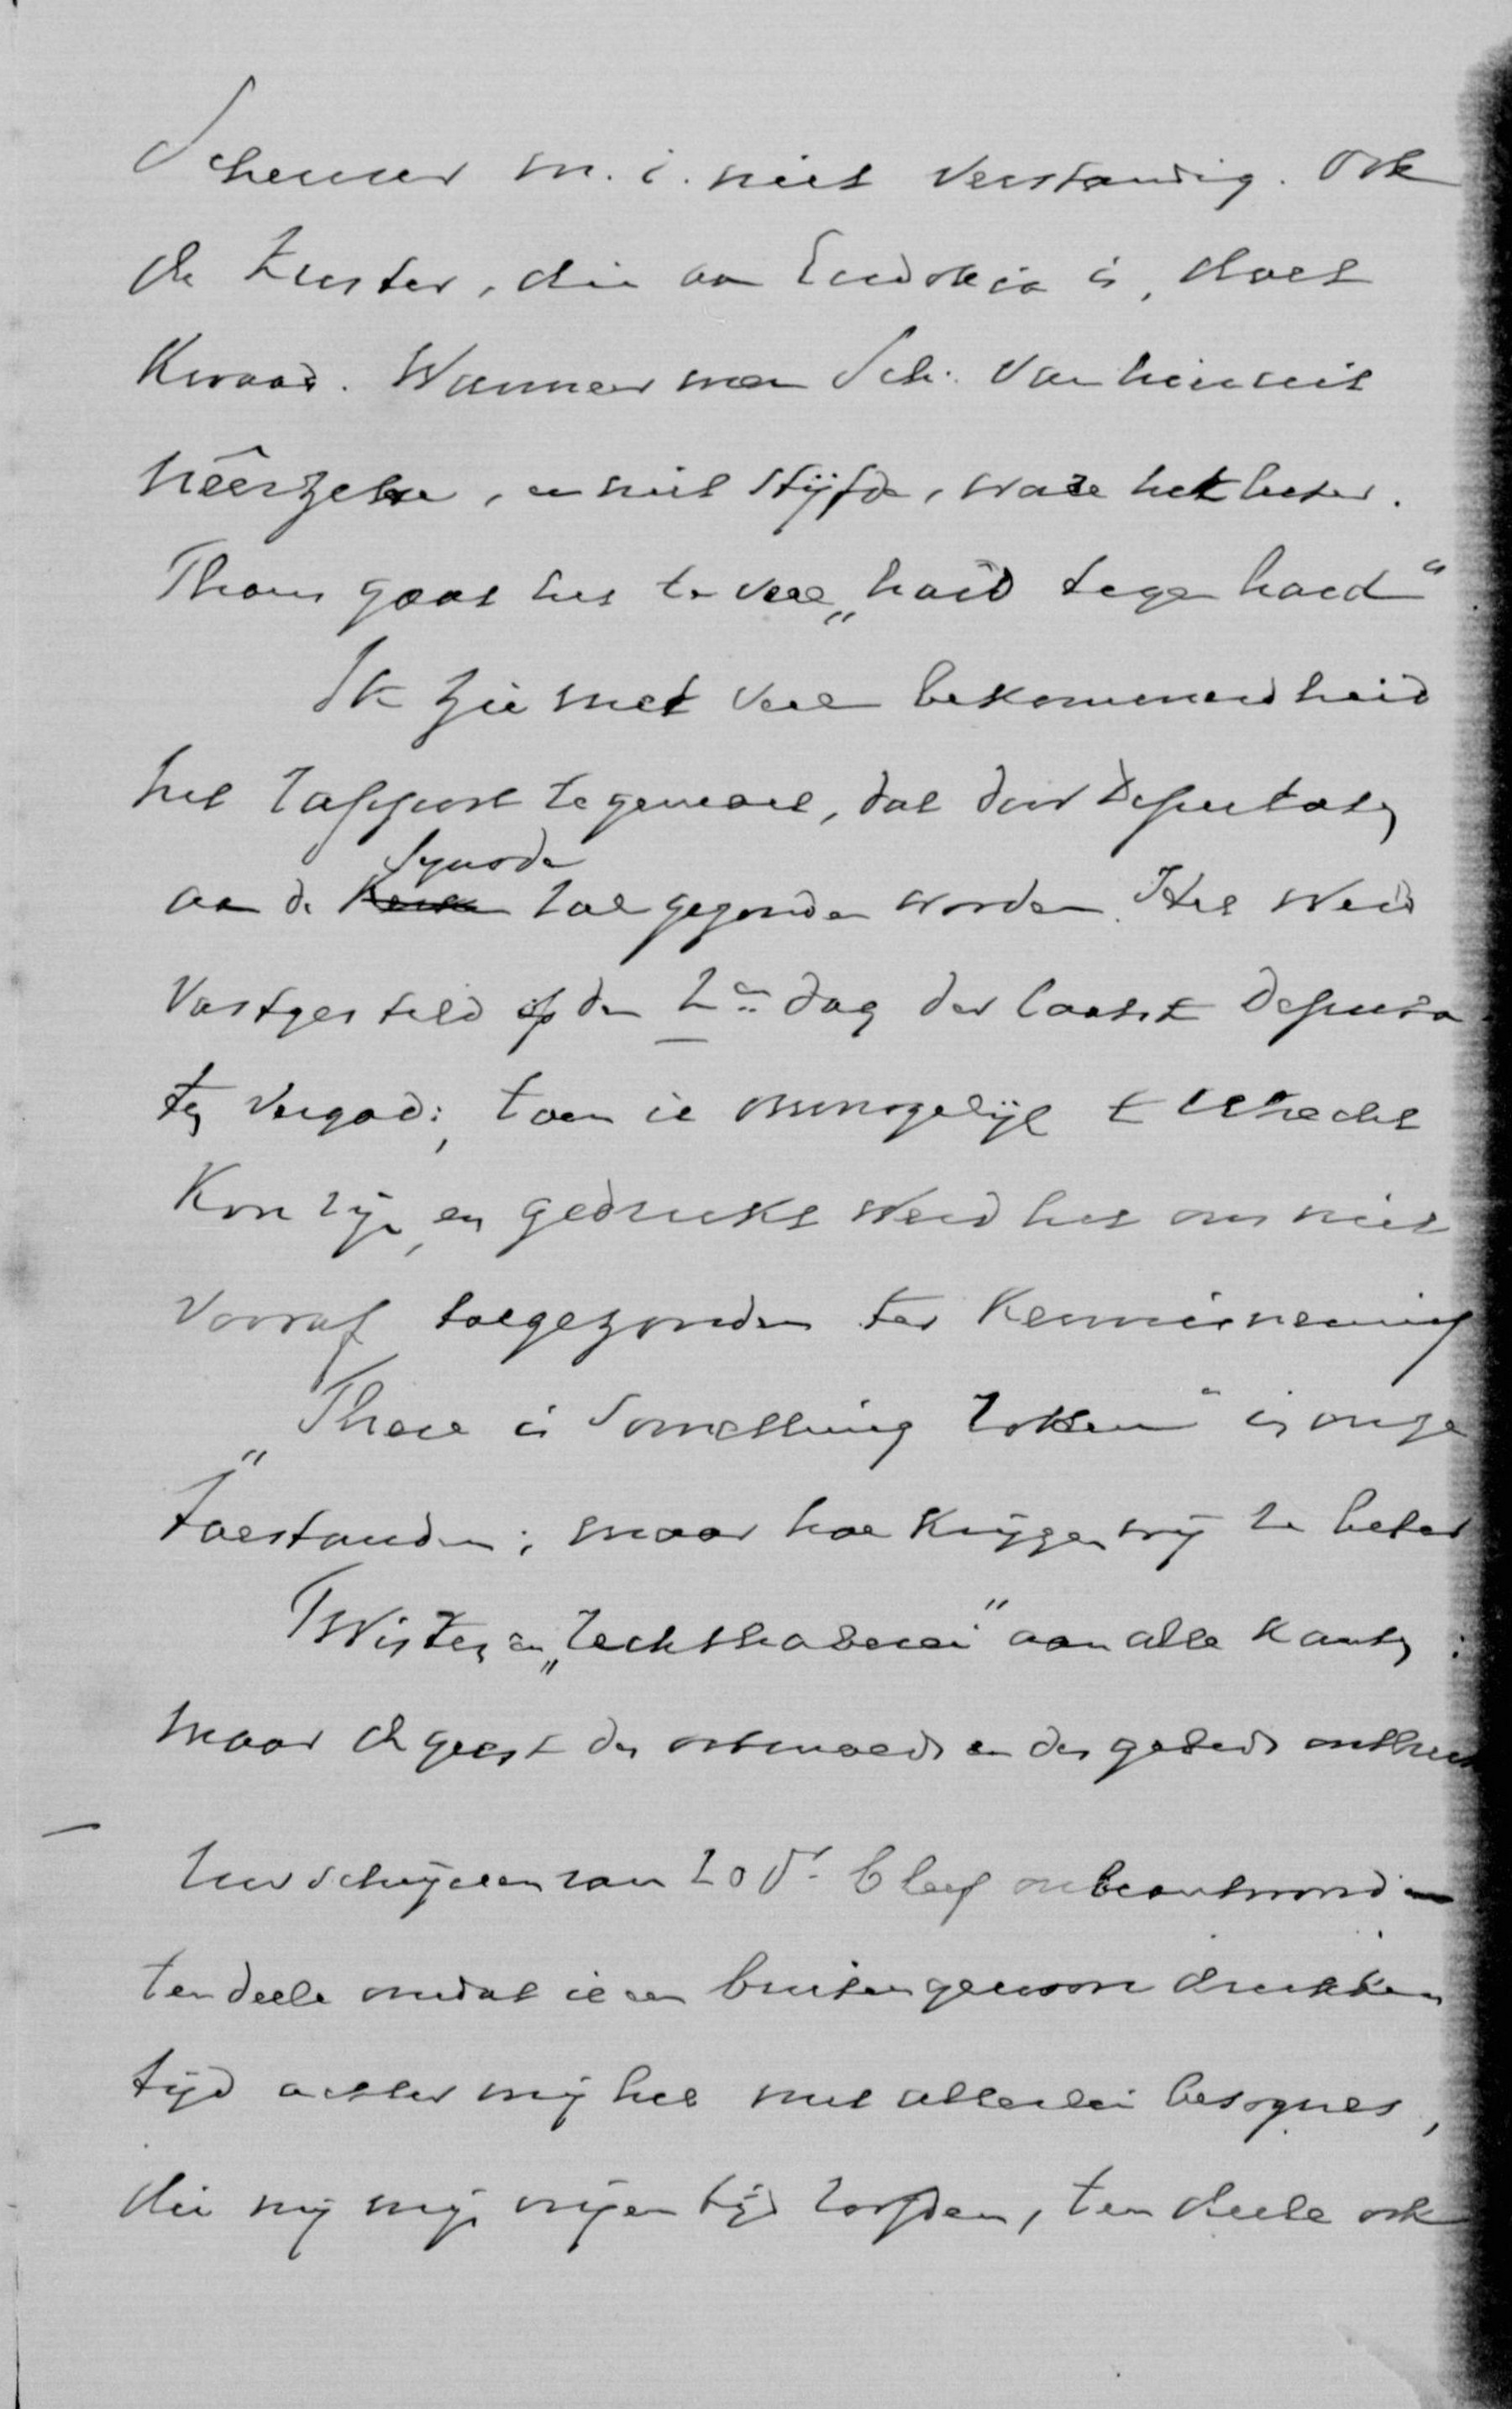 Scheurer m.i. niet verstandig. Ook
de Zuster, die aan Eudokia is, doet
kwaad. Wanneer men Sch. van hieruit
néêrzette, en niet stijfde, ware het beter.
Thans gaat het te veel „hard tegen hard“.
Ik zie met veel bekommerdheid
het rapport tegemoet, dat door Deputaten
aan de Kerken Synode toegezonden worden. Het werd
vastgesteld op den 2en dag der laatste Deputa-
ten vergad:, toen ik onmogelijk te Utrecht
kon zijn, en gedrukt werd het ons niet
vooraf toegezonden ter kennisneming
„There is something rotten“ in onze
toestanden; maar hoe krijgen wij ze beter
Twisten en „rechthaberei“ aan alle kanten:
maar de geest des ootmoeds en des gebeds
Uw schrijven van 20 dr. bleef onbeantwoord
ten deele omdat ik een buitengewoon drukken
tijd achter mij heb met allerlei besognes,
die mij mijn vrijen tijd roofden, ten deele ook